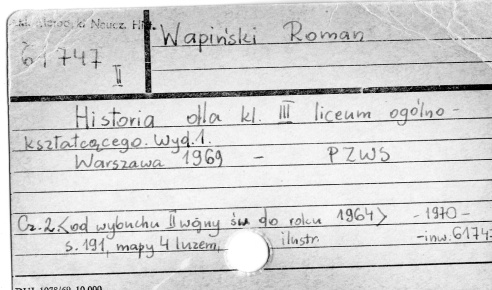 Neucz. His.
Wapiński Roman
61747
II
Historia dla kl. III liceum ogólno-
kształcącego. Wyd. 1.
Warszawa 1969 - PZWS
Cz. 2 <od wybuchu II wojny św. do roku 1964> - 1970 -
s. 191, mapy 4 luzem, ilustr. - inw. 61747
1978/69 10.000